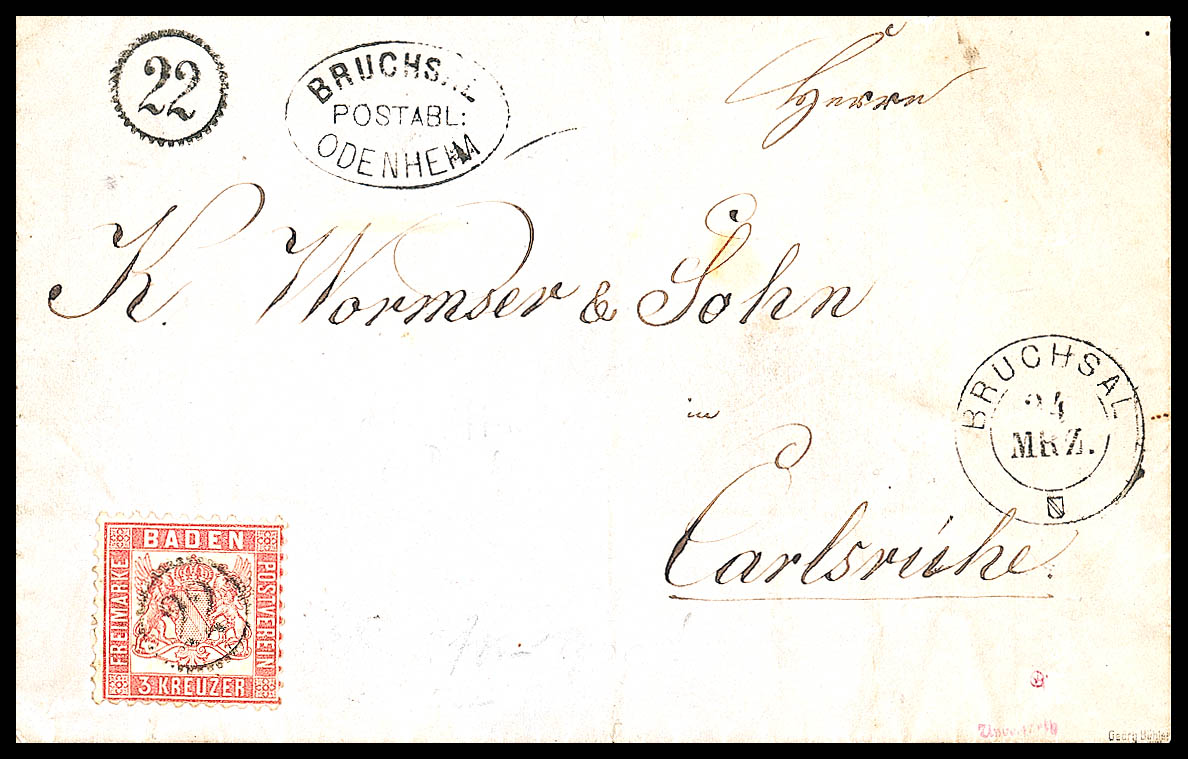 22
BRUCHSAL
POSTABL:
ODENHEIM
Herrn
K. Wormser & Sohn
in
Carlsruhe.
BRUCHSAL
24
MRZ.
BADEN
FREIMARKE
POSTVEREIN
3 KREUZER
22
Georg